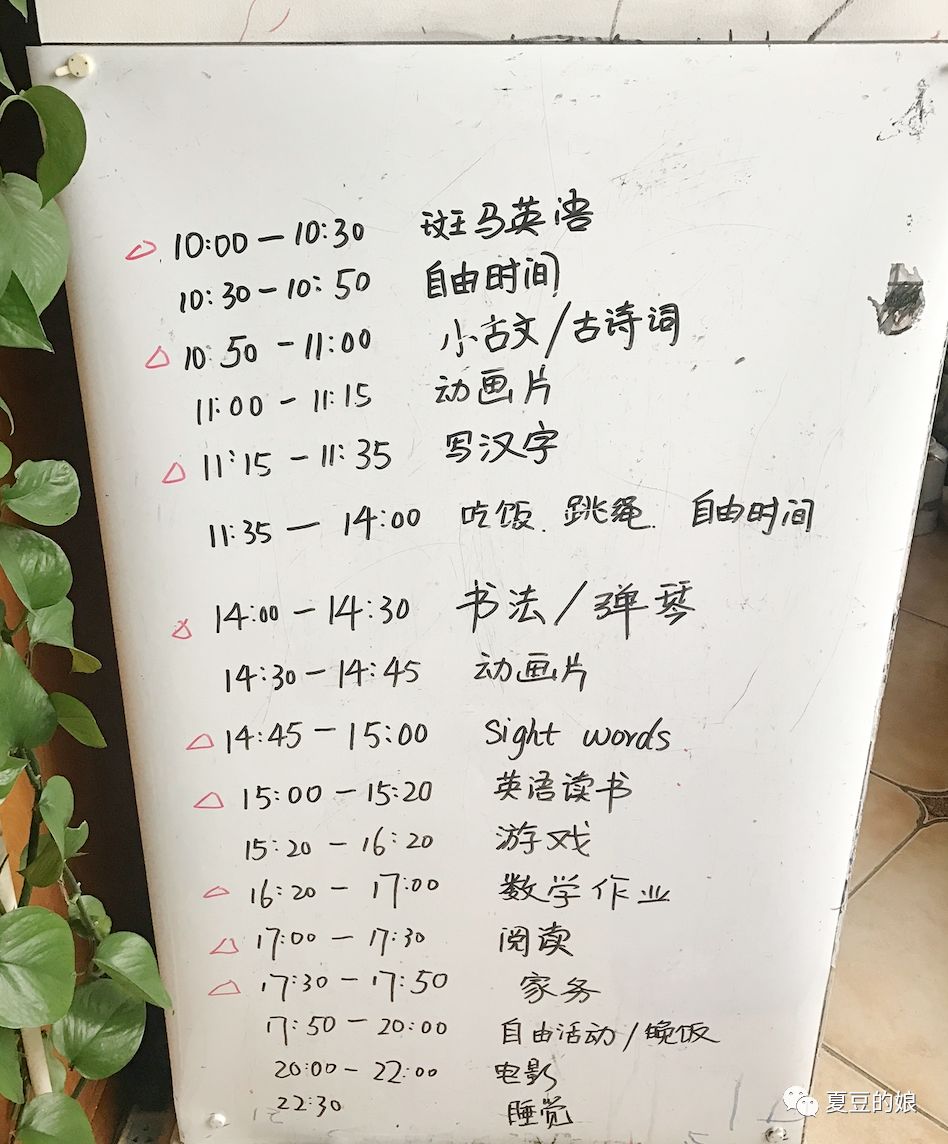 △ 10:00 — 10:30 斑马英语
10:30 — 10:50 自由时间
△ 10:50 — 11:00 小古文/古诗词
11:00 — 11:15 动画片
△ 11:15 — 11:35 写汉字
11:35 — 14:00 吃饭、跳绳、自由时间
△ 14:00 — 14:30 书法/弹琴
14:30 — 14:45 动画片
△ 14:45 — 15:00 Sight words
△ 15:00 — 15:20 英语读书
15:20 — 16:20 游戏
△ 16:20 — 17:00 数学作业
△ 17:00 — 17:30 阅读
△ 17:30 — 17:50 家务
17:50 — 20:00 自由活动/晚饭
20:00 — 22:00 电影
22:30 睡觉
夏豆的娘